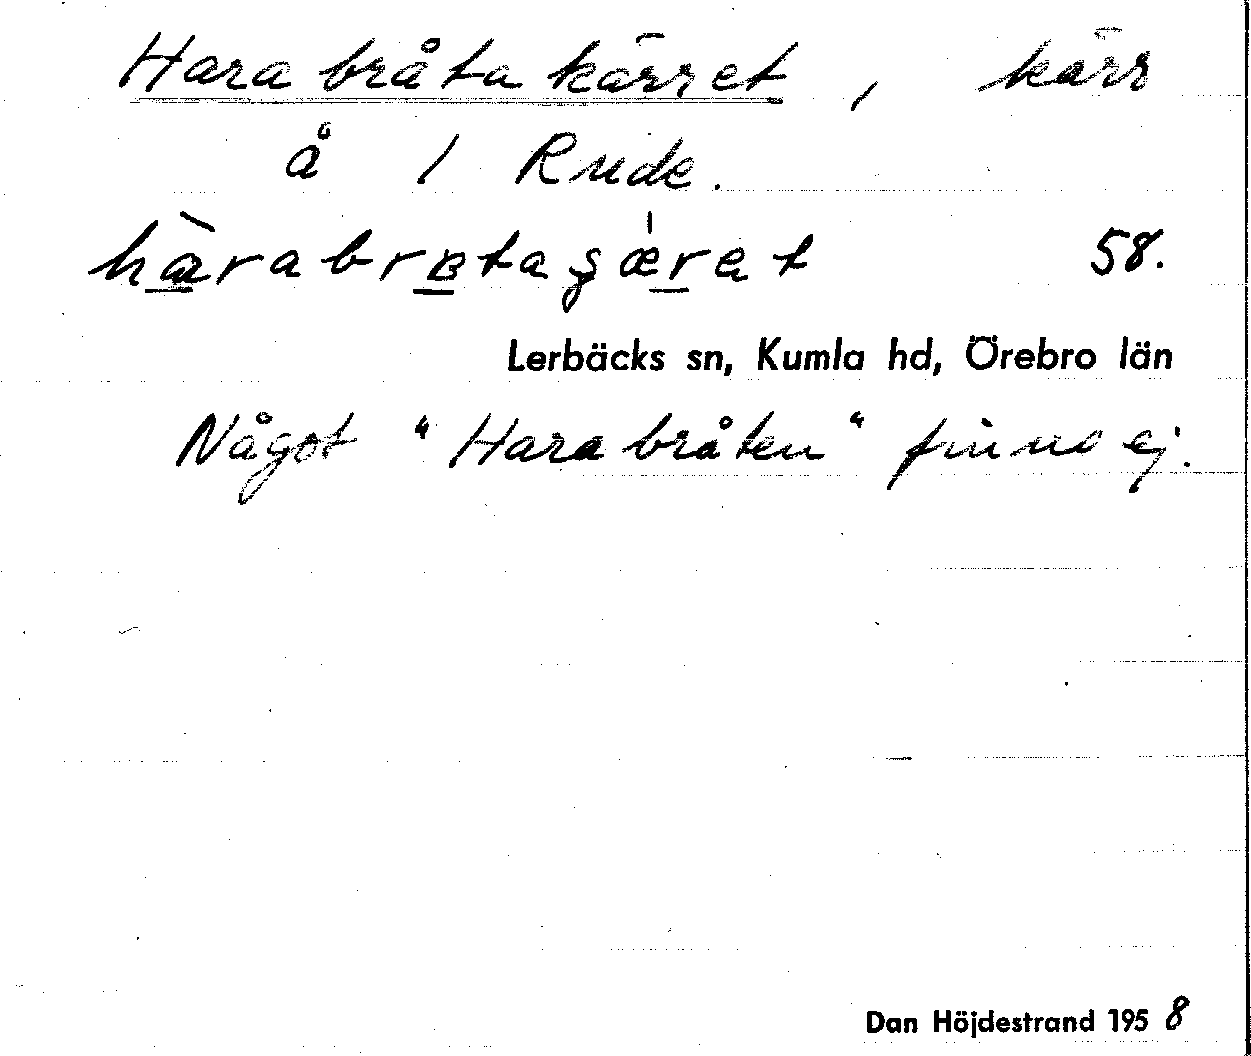 Harabråtakärret, kärr
å 1 Rude.
58.
Lerbäcks sn, Kumla hd, Örebro län
Något "Harabråten" finns ej.
Dan Höjdestrand 1958